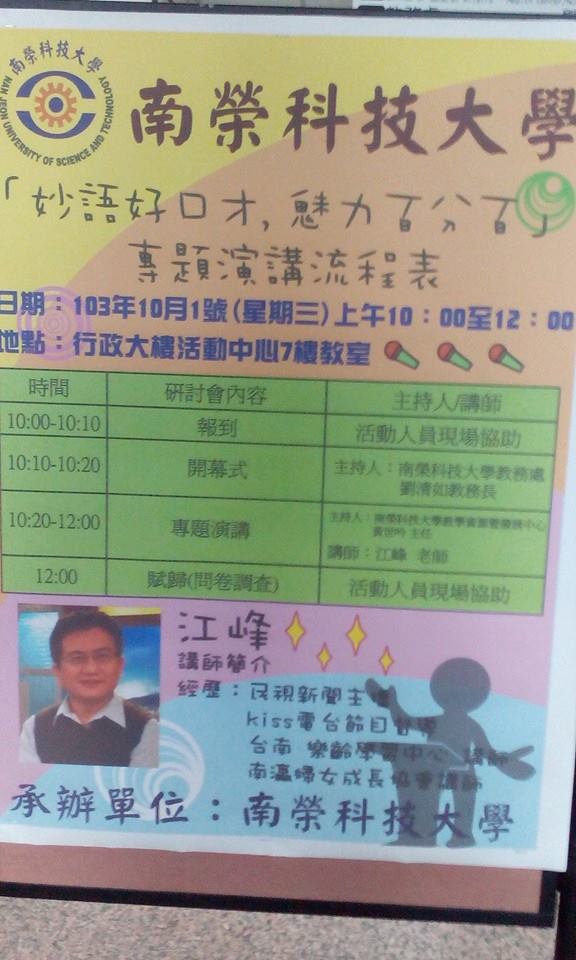 南榮科技大學
NAN JEON UNIVERSITY OF SCIENCE AND TECHNOLOGY
南榮科技大學
「妙語好口才,魅力百分百」
專題演講流程表
日期：103年10月1號(星期三)上午10：00至12：00
地點：行政大樓活動中心7樓教室
時間 研討會內容 主持人/講師
10:00-10:10 報到 活動人員現場協助
10:10-10:20 開幕式 主持人：南榮科技大學教務處
劉清如教務長
10:20-12:00 專題演講 主持人：南榮科技大學教學資源暨發展中心
黃世吟 主任
講師：江峰 老師
12:00 賦歸(問卷調查) 活動人員現場協助
江峰
講師簡介
經歷：民視新聞主播
kiss電台節目督導
台南 樂齡學習中心 講師
南瀛婦女成長協會講師
承辦單位：南榮科技大學